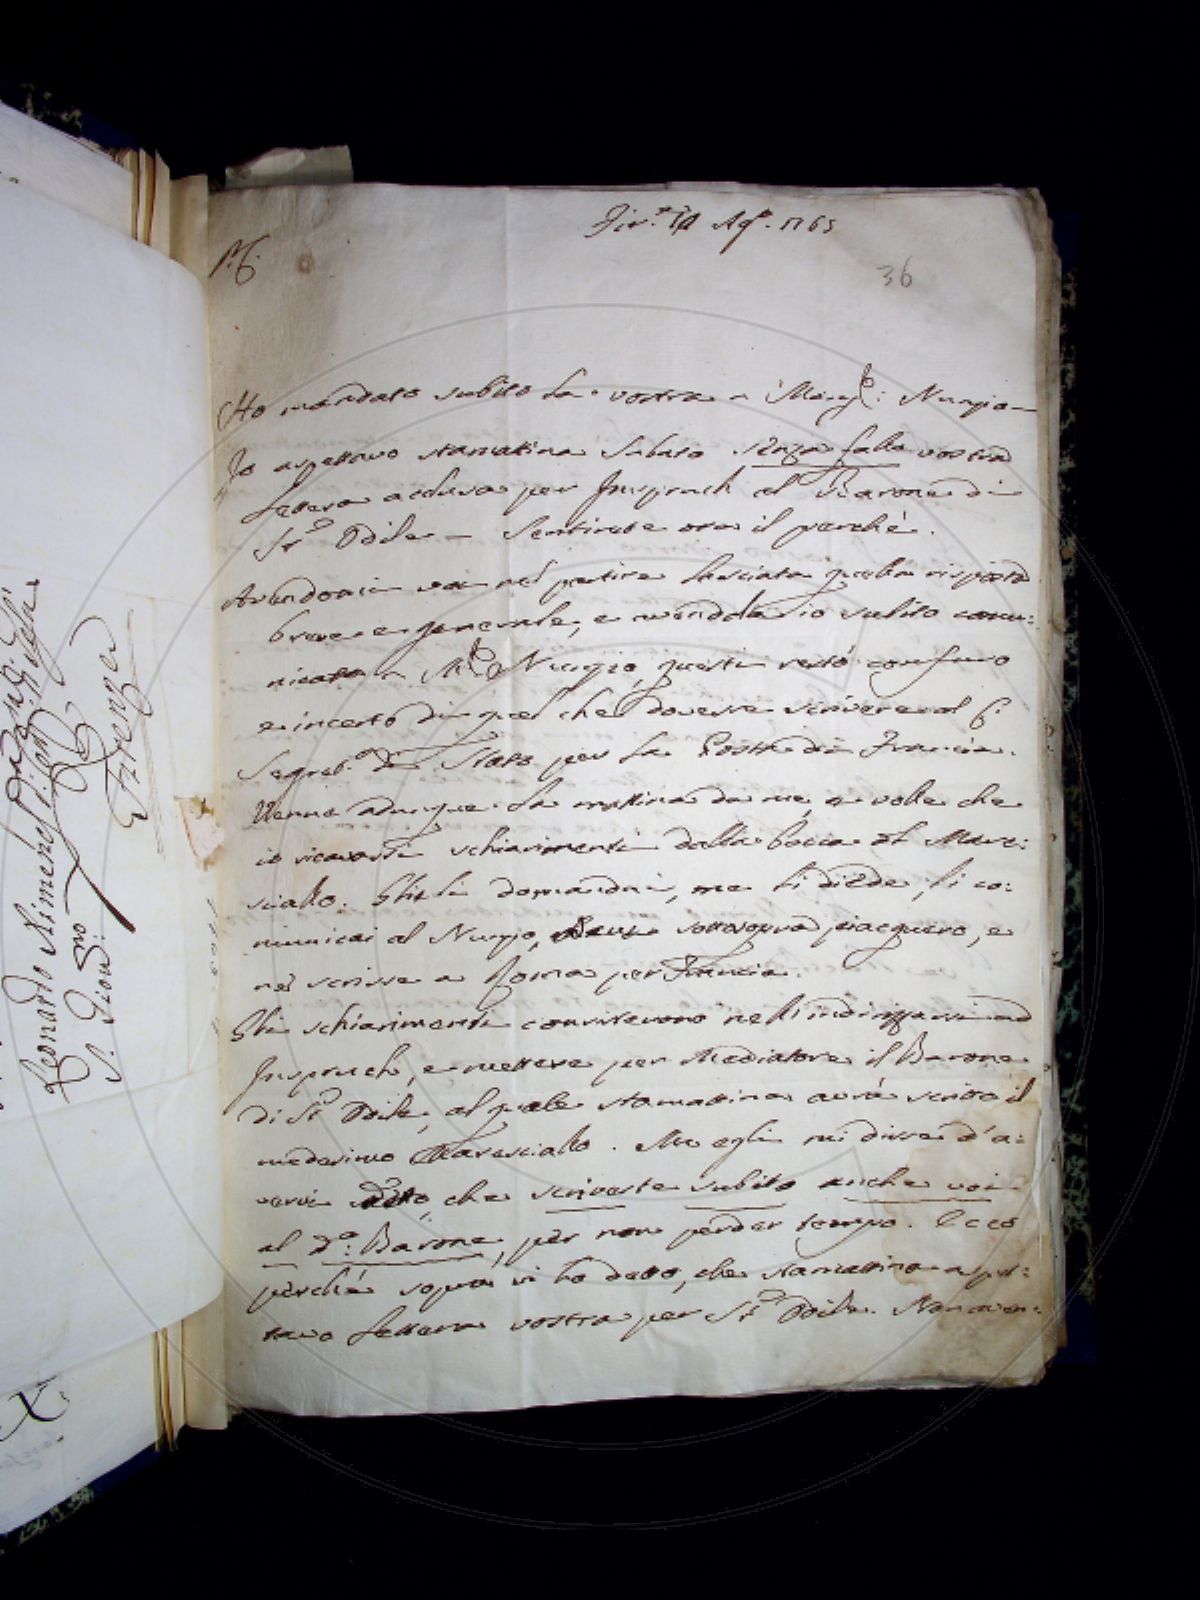 Fir.e 10 Ag.o 1765
P.C.
36
Ho mandato subito la vostra a Mons.r Nunzio
Io aspettavo stamattina sabato senza fallo vostra
lettera acclusa per Inspruch al Barone di
S.t Odile — Sentirete ora il perchè.
Avendomi voi nel partire lasciata quella risposta
breve e generale, e avendola io subito comu:
nicata a M.r Nunzio, questi restò confuso
e incerto di quel che dovesse scrivere al C.
Segret.o di Stato per la Posta di Francia.
Venne adunque la mattina da me, e volle che
io ricavassi schiarimenti dalla bocca del Mare:
sciallo. Gli li domandai, me li diede, li co:
municai al Nunzio, sottosopra piacquero, e
ne scrisse a Roma per Francia.
Gli schiarimenti consistevono nell'indirizzarvi ad
Inspruch, e mettere per Mediatore il Barone
di S.t Odile, al quale stamattina avrà scritto il
medesimo Maresciallo. Ma egli mi disse d'a:
vervi detto, che scriveste subito anche voi
al d.o Barone, per non perder tempo. Ecco
perchè sopra vi ho detto, che stamattina aspet:
tavo lettera vostra per S.t Odile. Non aven:
Leonardo Ximenes
S. Giov:
Firenze